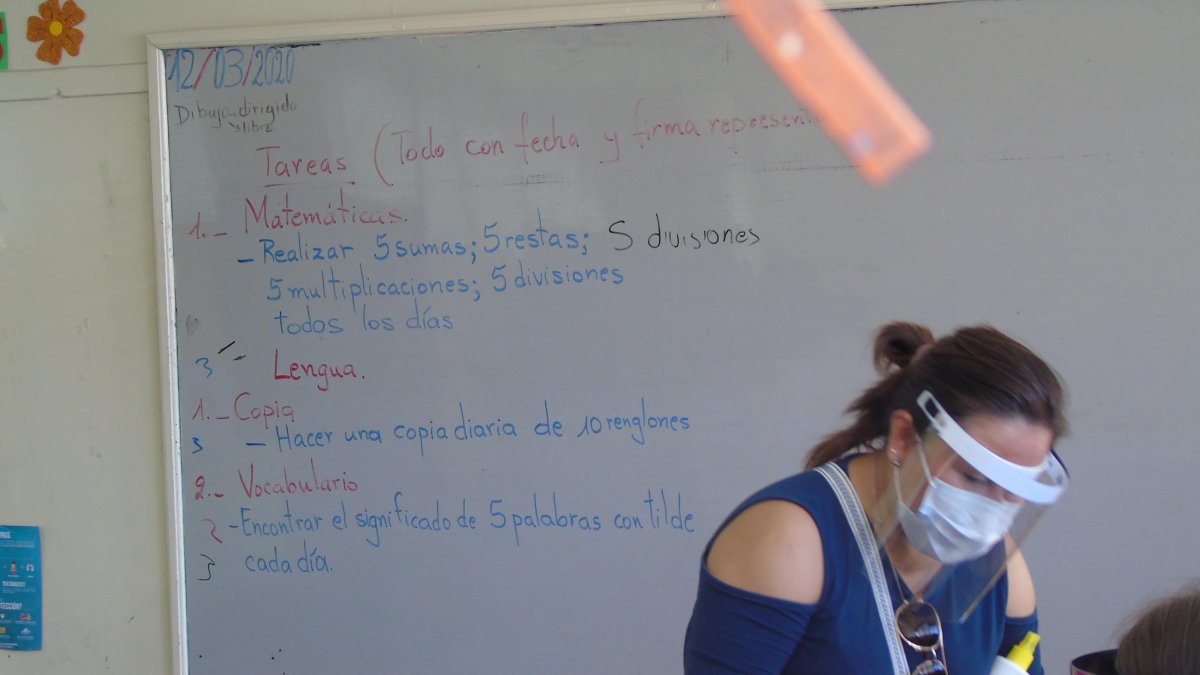 12/03/2020
Dibujo dirigido
libre
Tareas (Todo con fecha y firma represent
1._ Matemáticas.
- Realizar 5 sumas; 5 restas; 5 divisiones
5 multiplicaciones; 5 divisiones
todos los días
3 Lengua.
1._ Copia
3 - Hacer una copia diaria de 10 renglones
2._ Vocabulario
2 - Encontrar el significado de 5 palabras con tilde
3 cada día.
TRATAMIENTO